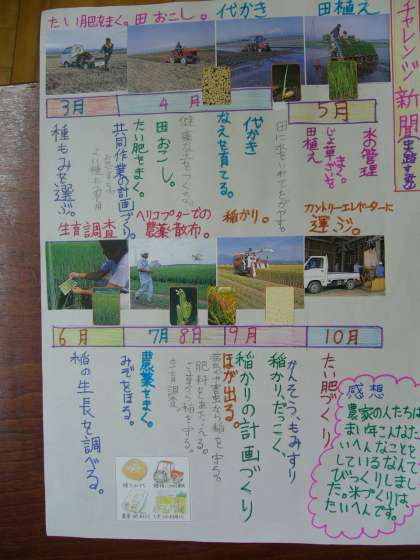 チャレンジ新聞
たい肥をまく。
田おこし。
代かき
田植え
3月
4月
5月
種もみを選ぶ。
共同作業の計画づくり。
たい肥をまく。
田おこし。
健康な土をつくる。
なえを育てる。
代かき
田に水を入れてたがやす。
田植え
じょ草ざいをまく。
水の管理
生育調査
ヘリコプターでの農薬散布。
稲かり。
カントリーエレベーターに運ぶ。
6月
7月
8月
9月
10月
稲の生長を調べる。
みぞをほる。
農薬をまく。
生育調査。
肥料をあたえる。
病気や害虫から稲を守る。
ほが出る。
稲かりの計画づくり
稲かり、だっこく、
かんそう、もみすり
たい肥づくり
感想
農家の人たちは
まい年こんなた
いへんなことを
しているなんて
びっくりしまし
た。米づくりは
たいへんです。